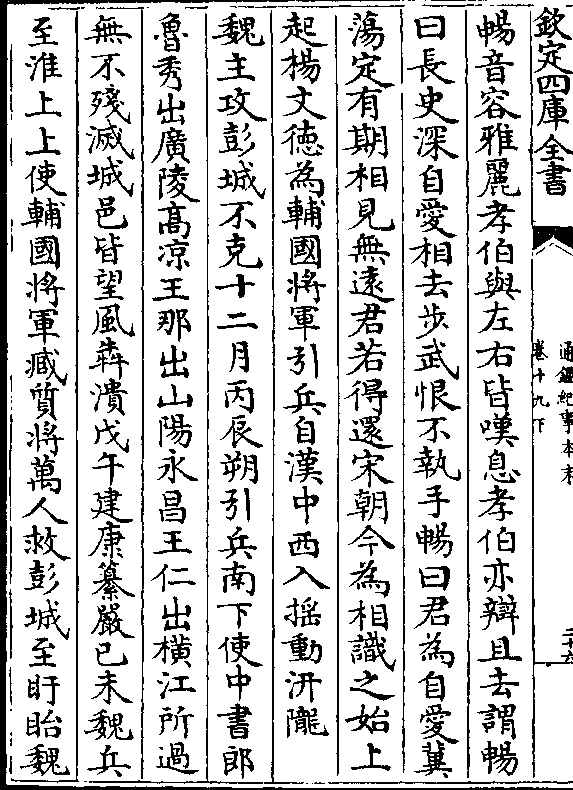 欽定四庫全書
通鑑紀事本末
卷十九下
二十六
暢音容雅麗孝伯與左右皆嘆息孝伯亦辯且去謂暢
曰長史深自愛相去步武恨不執手暢曰君為自愛冀
蕩定有期相見無遠君若得還宋朝今為相識之始上
起楊文德為輔國將軍引兵自漢中西入揺動汧隴
魏主攻彭城不克十二月丙辰朔引兵南下使中書郎
魯秀出廣陵高凉王那出山陽永昌王仁出横江所過
無不殘滅城邑皆望風犇潰戊午建康纂嚴已未魏兵
至淮上上使輔國將軍臧質將萬人救彭城至盱眙魏